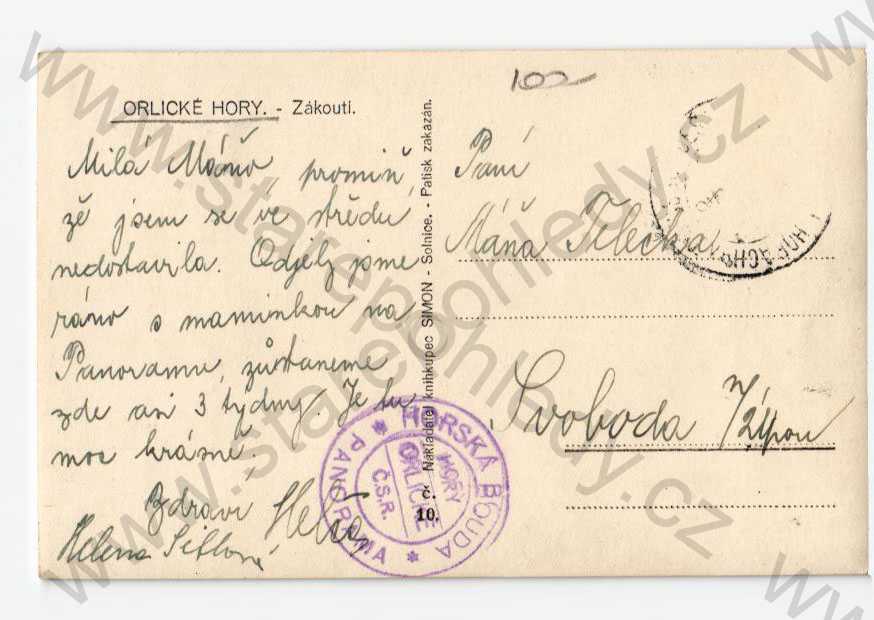 102
ORLICKÉ HORY. - Zákoutí.
Milá Máňo promiň,
zě jsem se ve středu
nedostavila. Odjely jsme
ráno s maminkou na
Panoramu, zůstaneme
zde asi 3 týdny. Je tu
moc krásně.
Zdraví Hela
Helena
č. 10. Nakladatel knihkupec ŠIMON - Solnice. - Patisk zakázán.
Paní
Máňa
Svoboda n/Úpou
* HORSKÁ BOUDA * PANORAMA
HORY
ORLICKÉ
Č.S.R.
www.starepohledy.cz
www.starepohledy.cz